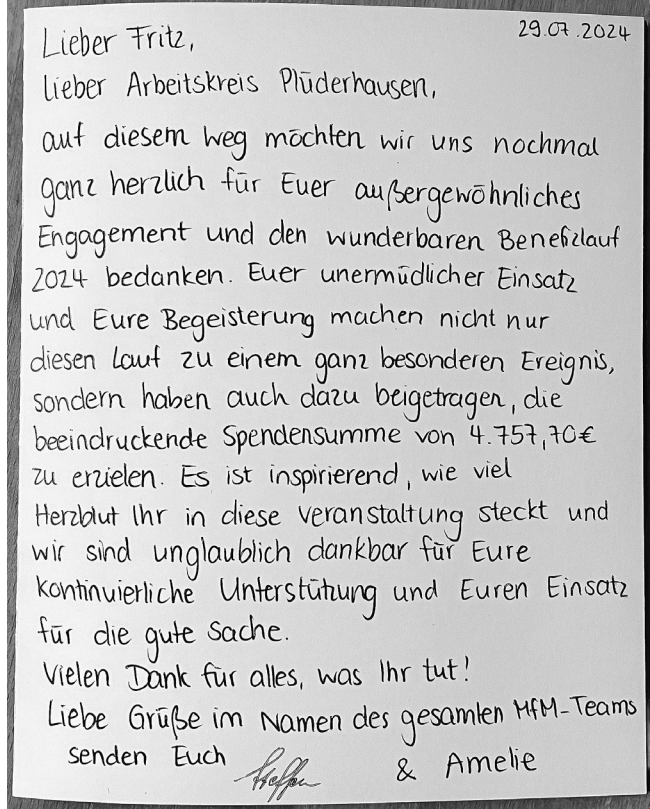 29.07.2024
Lieber Fritz,
lieber Arbeitskreis Plüderhausen,
auf diesem Weg möchten wir uns nochmal
ganz herzlich für Euer außergewöhnliches
Engagement und den wunderbaren Benefizlauf
2024 bedanken. Euer unermüdlicher Einsatz
und Eure Begeisterung machen nicht nur
diesen Lauf zu einem ganz besonderen Ereignis,
sondern haben auch dazu beigetragen, die
beeindruckende Spendensumme von 4.757,70€
zu erzielen. Es ist inspirierend, wie viel
Herzblut Ihr in diese Veranstaltung steckt und
wir sind unglaublich dankbar für Eure
kontinuierliche Unterstützung und Euren Einsatz
für die gute Sache.
Vielen Dank für alles, was Ihr tut!
Liebe Grüße im Namen des gesamten MfM-Teams
senden Euch Steffen & Amelie